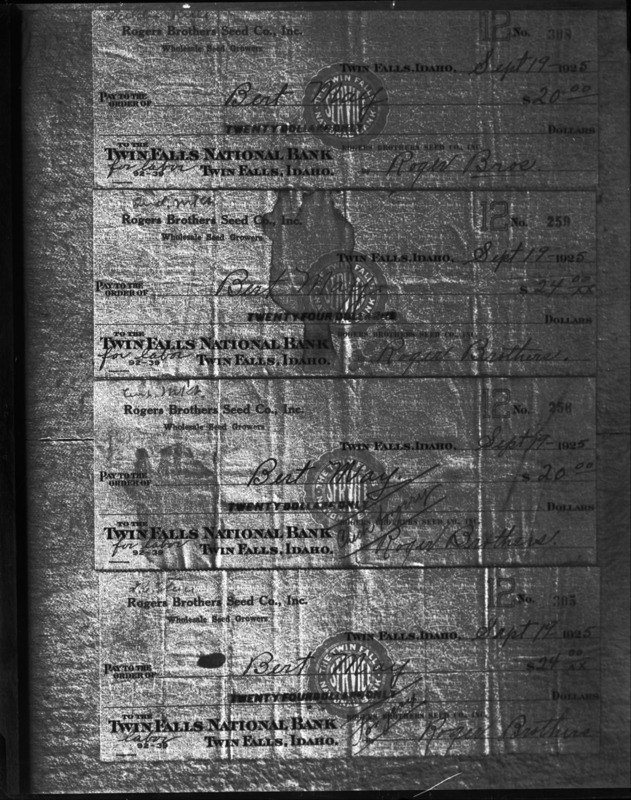 Rogers Brothers Seed Co., Inc.
Wholesale Seed Growers
12 No. 308
TWIN FALLS, IDAHO, Sept 19 - 1925
PAY TO THE ORDER OF Bert May $20.00
TWENTY DOLLARS ONLY DOLLARS
TO THE
TWIN FALLS NATIONAL BANK
ROGERS BROTHERS SEED CO., INC.
for labor 92-39 TWIN FALLS, IDAHO.
BY Roged Bros
Rogers Brothers Seed Co., Inc.
Wholesale Seed Growers
12 No. 259
TWIN FALLS, IDAHO, Sept 19 - 1925
PAY TO THE ORDER OF Bert May. $24 00/xx
TWENTY FOUR DOLLARS DOLLARS
TO THE
TWIN FALLS NATIONAL BANK
ROGERS BROTHERS SEED CO., INC.
for labor 92-39 TWIN FALLS, IDAHO.
Roged Brothers.
Rogers Brothers Seed Co., Inc.
Wholesale Seed Growers
12 No. 256
TWIN FALLS, IDAHO, Sept 19 - 1925
PAY TO THE ORDER OF Bert May. $20 00
TWENTY DOLLARS ONLY DOLLARS
TO THE
TWIN FALLS NATIONAL BANK
ROGERS BROTHERS SEED CO., INC.
for labor 92-39 TWIN FALLS, IDAHO.
Roged Brothers.
Rogers Brothers Seed Co., Inc.
Wholesale Seed Growers
12 No. 305
TWIN FALLS, IDAHO, Sept 19 1925
PAY TO THE ORDER OF Bert May $24 00/xx
TWENTY FOUR DOLLARS ONLY DOLLARS
TO THE
TWIN FALLS NATIONAL BANK
ROGERS BROTHERS SEED CO., INC.
labor 92-39 TWIN FALLS, IDAHO.
Roged Brothers